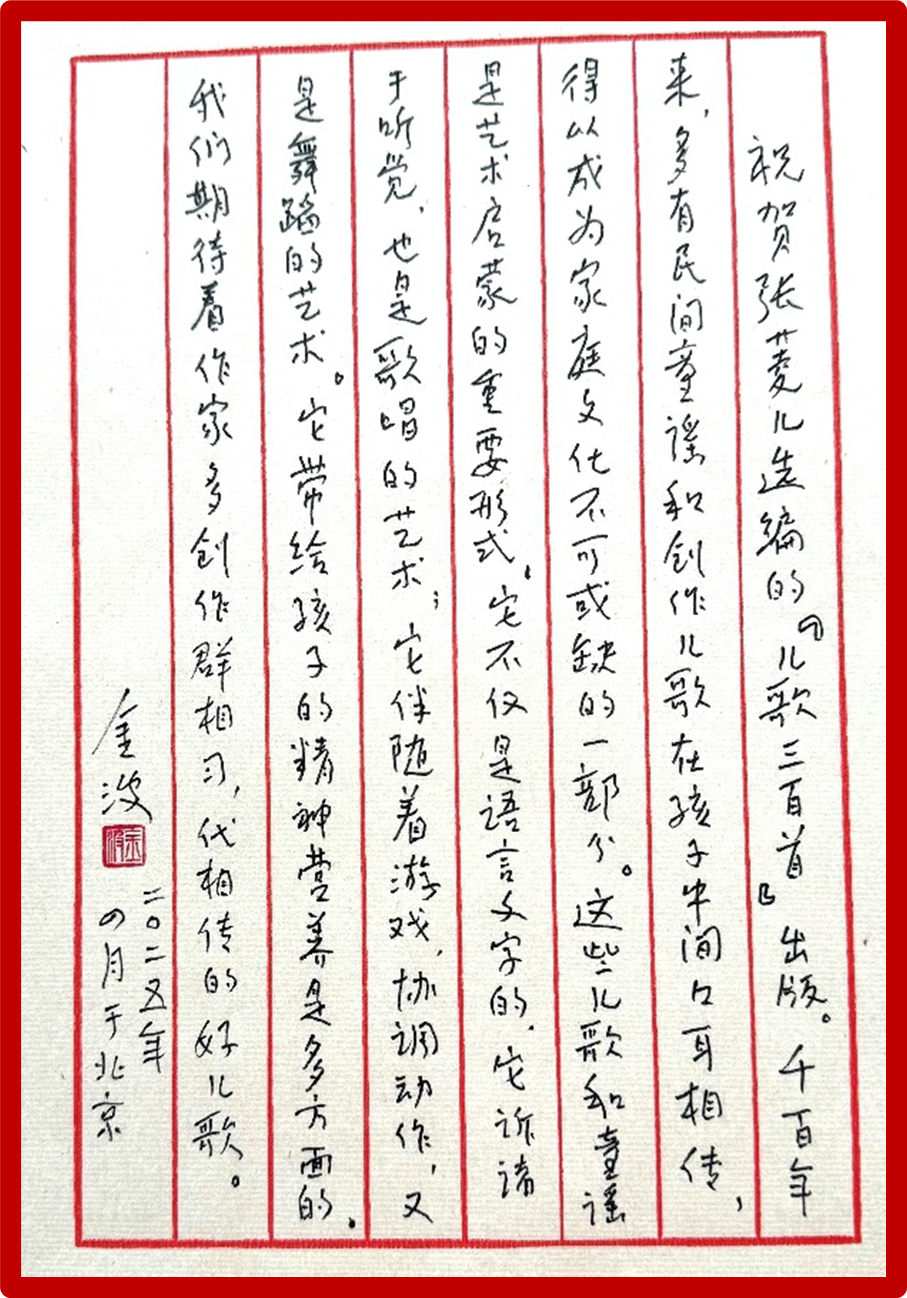 祝贺张菱儿选编的『儿歌三百首』出版。千百年
来，多有民间童谣和创作儿歌在孩子中间口耳相传，
得以成为家庭文化不可或缺的一部分。这些儿歌和童谣
是艺术启蒙的重要形式。它不仅是语言文字的，它诉诸
于听觉，也是歌唱的艺术；它伴随着游戏，协调动作，又
是舞蹈的艺术。它带给孩子的精神营养是多方面的。
我们期待着作家多创作群相习，代相传的好儿歌。
金波
金波
二〇二五年
四月于北京